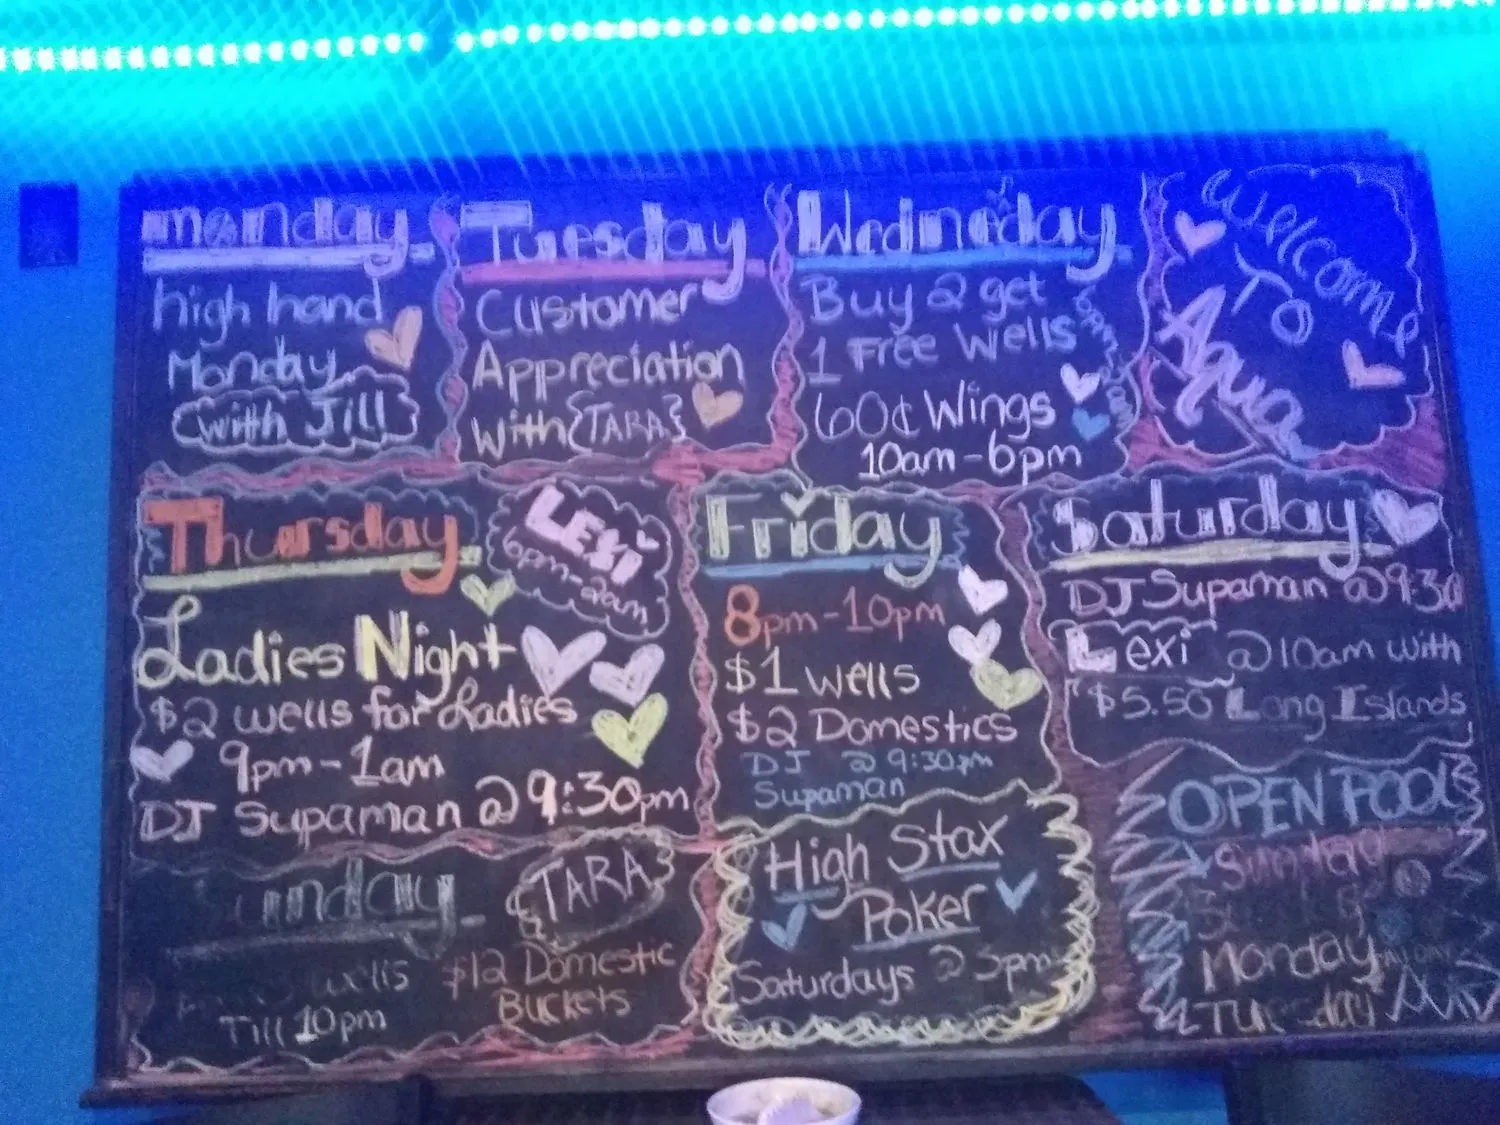 monday
high hand
Monday
with Jill
Tuesday
Customer
Appreciation
with {TARA}
Wednesday
Buy 2 get
1 Free Wells
60¢ Wings
10am-6pm
Welcome
To
Aqua
Thursday
Lexi
6pm-2am
Ladies Night
$2 wells for Ladies
9pm-1am
DJ Supaman @ 9:30pm
Friday
8pm-10pm
$1 wells
$2 Domestics
DJ @ 9:30pm
Supaman
Saturday
DJ Supaman @ 9:30
Lexi @ 10am with
$5.50 Long Islands
Sunday
TARA
wells
Till 10pm
$12 Domestic
Buckets
High Stax
Poker
Saturdays @ 3pm
OPEN POOL
Sunday
Monday
Tuesday